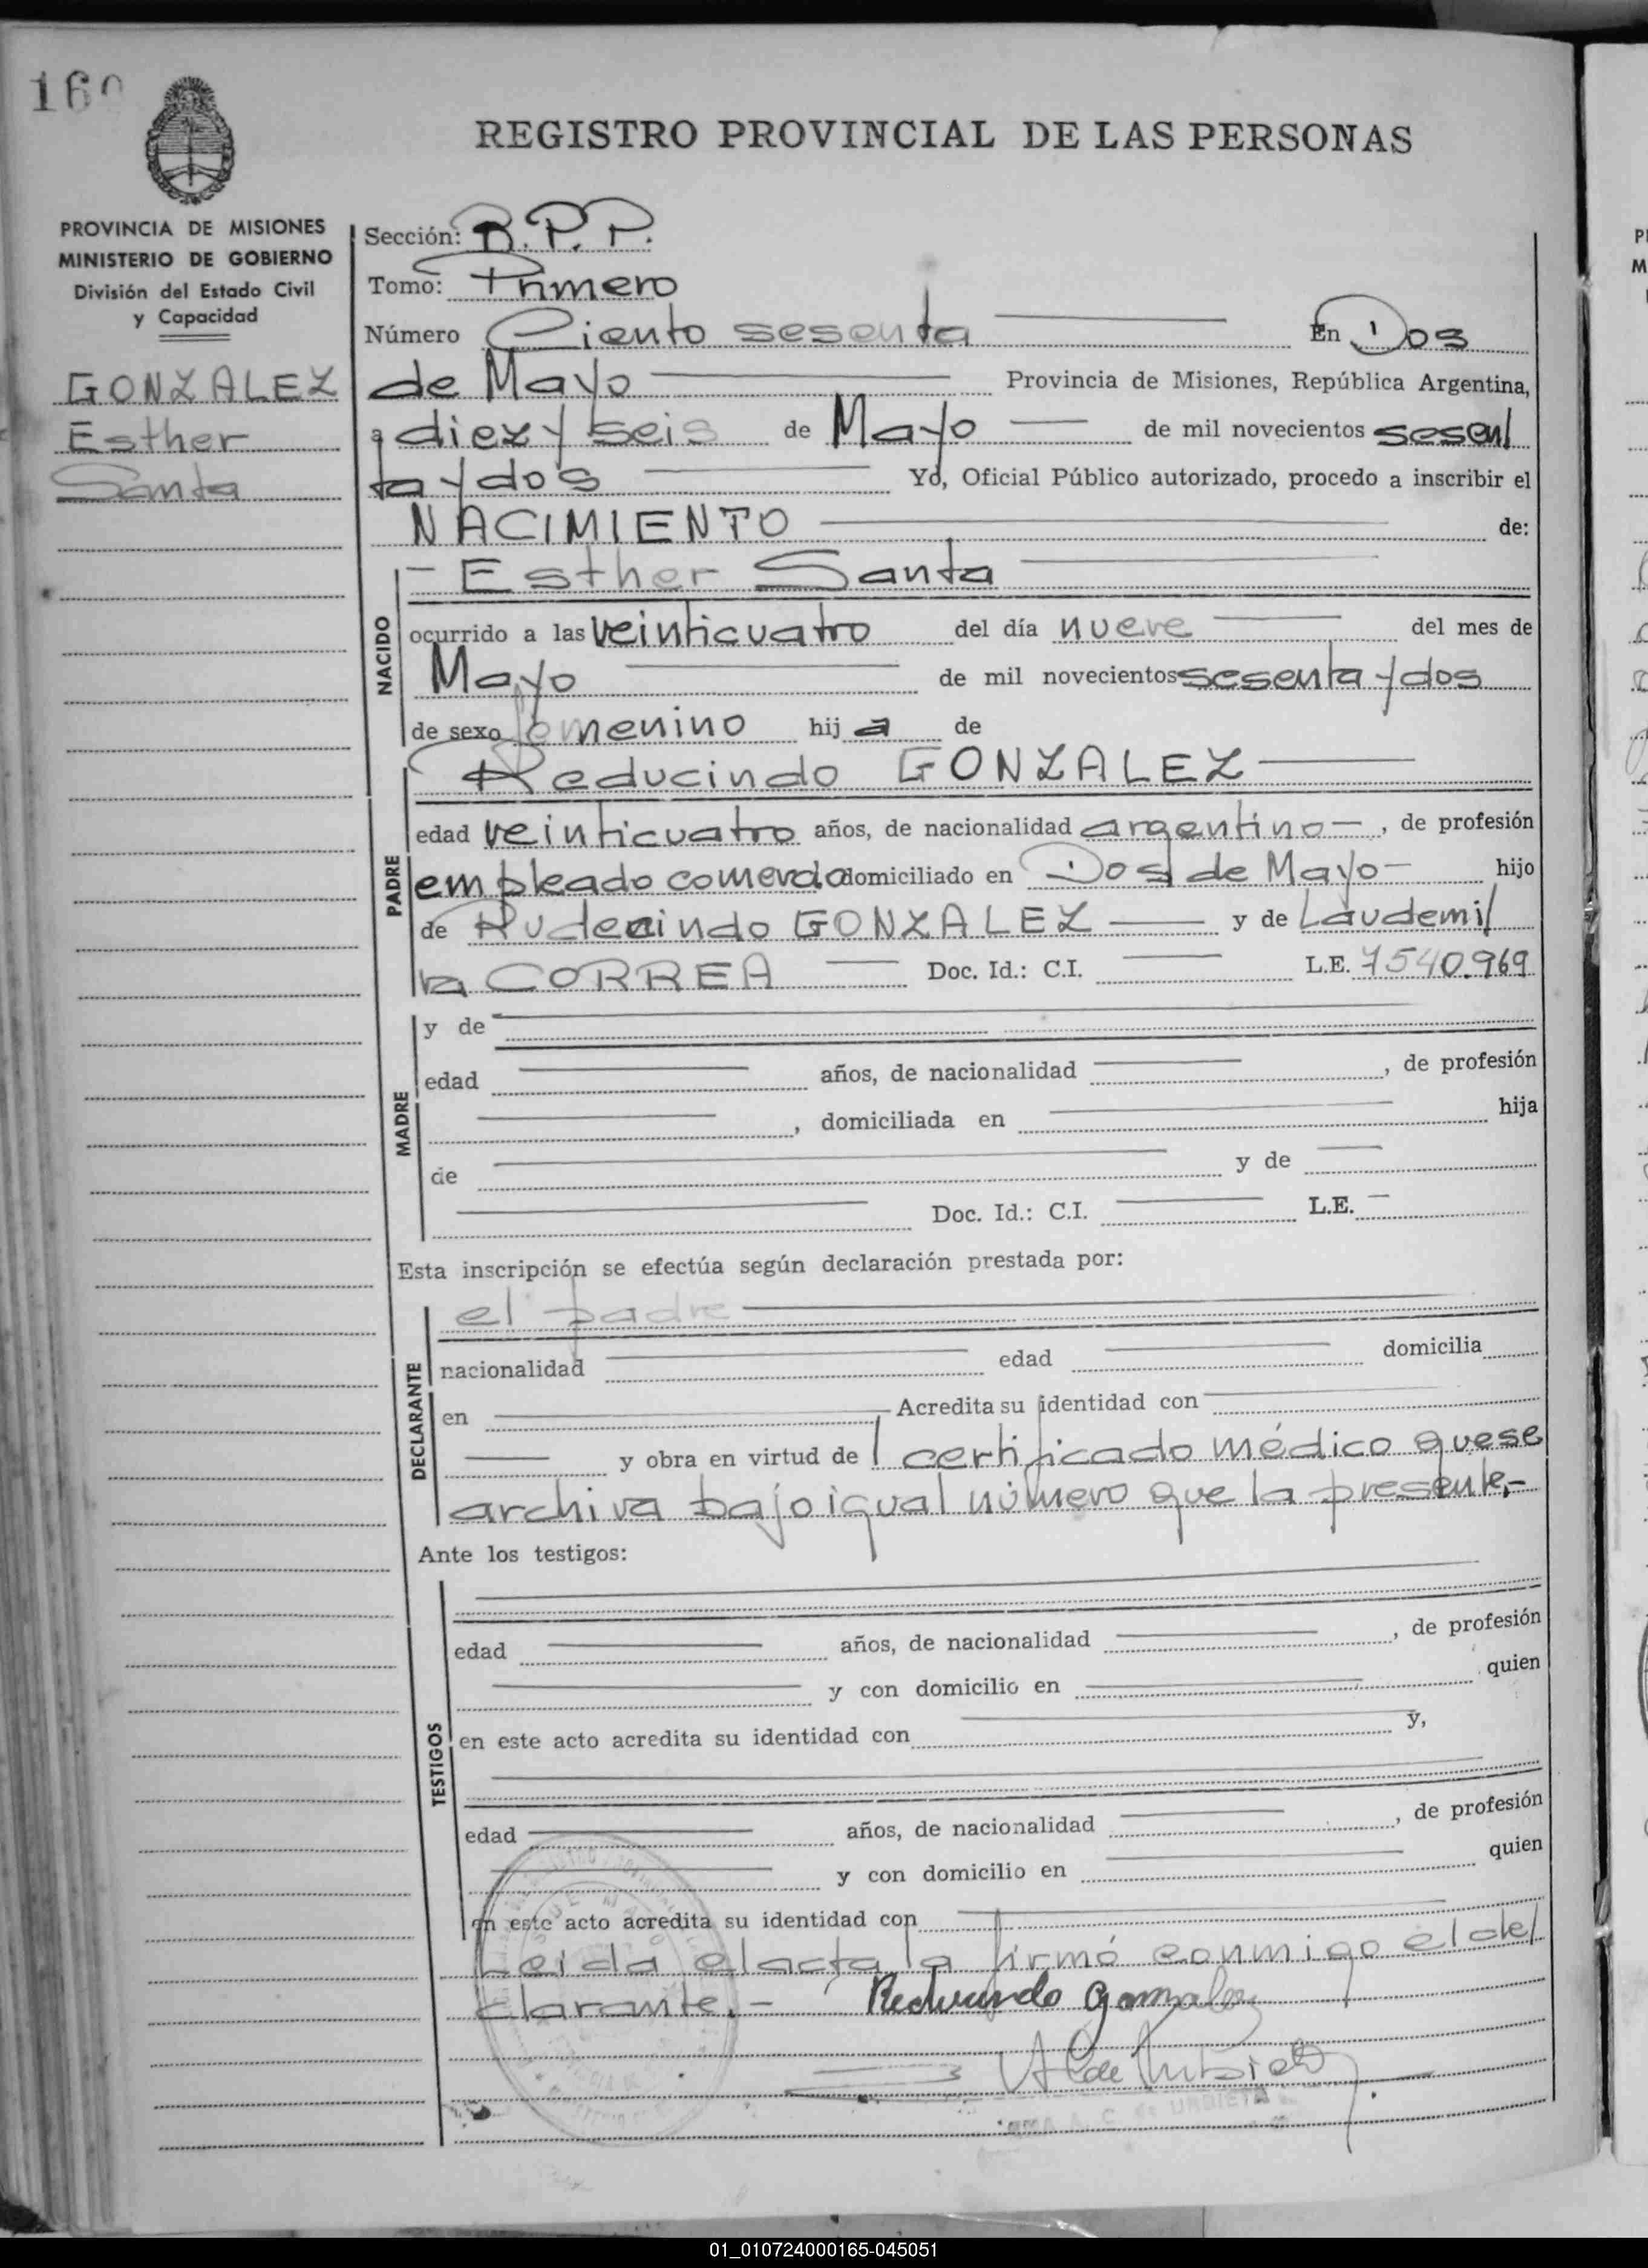 160
REGISTRO PROVINCIAL DE LAS PERSONAS
PROVINCIA DE MISIONES
MINISTERIO DE GOBIERNO
División del Estado Civil
y Capacidad
GONZALEZ
Esther
Santa
Sección: B.P.P.
Tomo: Primero
Número Ciento sesenta En Dos
de Mayo Provincia de Misiones, República Argentina,
a diez y seis de Mayo de mil novecientos sesen
ta y dos Yo, Oficial Público autorizado, procedo a inscribir el
NACIMIENTO de:
Esther Santa
NACIDO
ocurrido a las veinticuatro del día nueve del mes de
Mayo de mil novecientos sesenta y dos
de sexo femenino hij a de
Reducindo GONZALEZ
PADRE
edad veinticuatro años, de nacionalidad argentino, de profesión
empleado comercio domiciliado en Dos de Mayo hijo
de Rudecindo GONZALEZ y de Laudemi
ra CORREA Doc. Id.: C.I. L.E. 7540.969
MADRE
y de
edad años, de nacionalidad , de profesión
, domiciliada en hija
de y de
Doc. Id.: C.I. L.E.
Esta inscripción se efectúa según declaración prestada por:
DECLARANTE
el padre
nacionalidad edad domicilia
en Acredita su identidad con
y obra en virtud de certificado médico que se
archiva bajo igual número que la presente.-
Ante los testigos:
TESTIGOS
edad años, de nacionalidad , de profesión
y con domicilio en quien
en este acto acredita su identidad con y,
edad años, de nacionalidad , de profesión
y con domicilio en quien
en este acto acredita su identidad con
Leida el acta la firmó conmigo el de
clarante.- Reducindo Gonzalez
A. C. de URBIETA
01_010724000165-045051